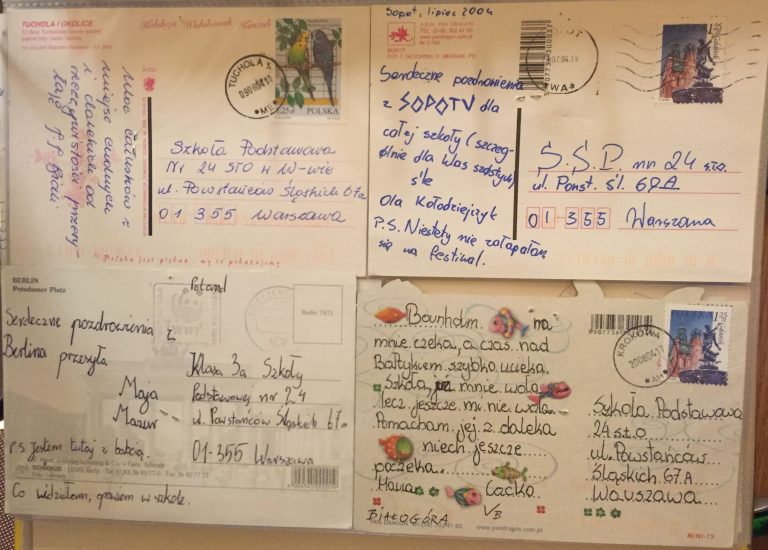 TUCHOLA I OKOLICE
Kolekcja Widokówek Kaszub
TUCHOLA 1
090804
POLSKA
1,25 zł
Moc całusków z
miejsc cudnych
i dalekich od
rzeczywistości przesy-
Szkoła Podstawowa
Nr 24 STO w W-wie
ul. Powstańców Śląskich 67a
01355 Warszawa
Polska jest piękna - my to pokazujemy
Sopot, lipiec 2004
SOPOT
Serdeczne pozdrowienia
z SOPOTU dla
całej szkoły (szczeg-
ólnie dla Was szóstych)
śle
Ola Kołodziejczyk
P.S. Niestety nie załapałam
się na festiwal.
1,25
S.S.P. nr 24 sto.
ul. Powst. śl. 67A
01355 Warszawa
BERLIN
Potsdamer Platz
Poland
WWF
Serdeczne pozdrowienia z
Berlina przesyła
Maja
Mazur
P.S. Jestem tutaj z babcią.
Co widziałam, opowiem w szkole.
Klasa 3a Szkoły
Podstawowej nr 24
ul. Powstańców Śląskich 67a
01-355 Warszawa
SCHIKKUS
Bounham na
mnie czeka, a czas nad
Bałtykiem szybko ucieka.
Szkoła już mnie woła
lecz jeszcze mi nie wola.
Pomacham jej z daleka
niech jeszcze
poczeka.
Hania Cacko
VB
BIAŁOGÓRA
POLSKA 1,25
KROKOWA
200804 17
Szkoła Podstawowa
24 s.t.o
ul. Powstańców
Śląskich 67.A
Warszawa
www.pandragon.com.pl
MINI-75